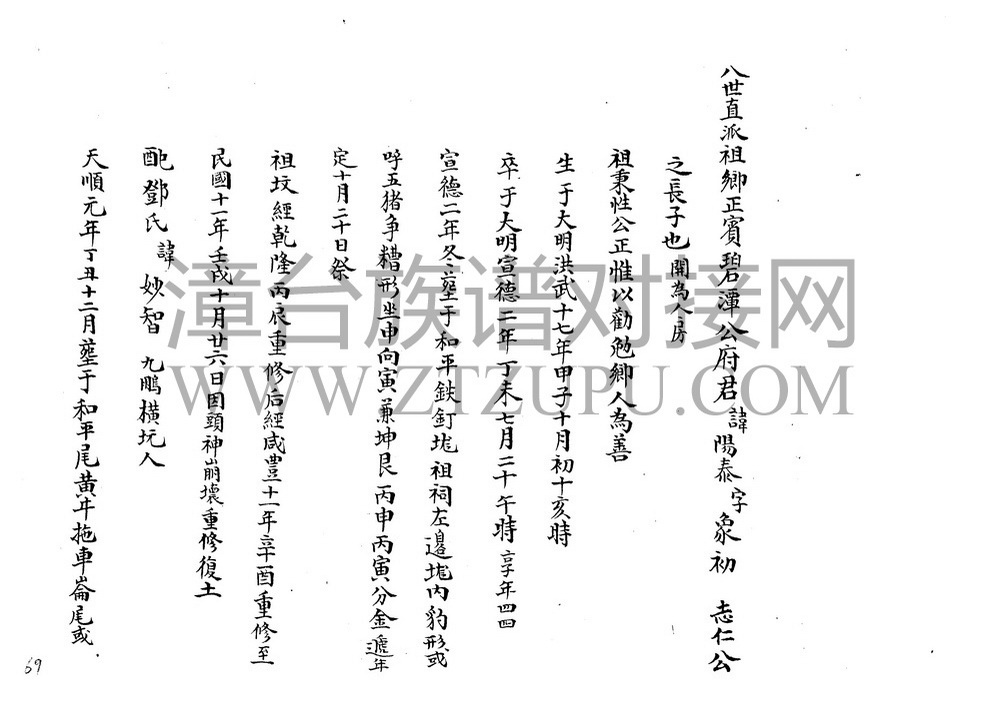 八世直派祖鄉正賓碧潭公府君諱陽泰字象初 志仁公
之長子也開為人房
祖秉性公正惟以勸勉鄉人為善
生于大明洪武十七年甲子十月初十亥時
卒于大明宣德二年丁未七月二十午時享年四四
宣德二年冬塟于和平鉄釘垅祖祠左邊垅内豹形或
呼五猪争糟形坐申向寅兼坤艮丙申丙寅分金遞年
定十月二十日祭
祖坟經乾隆丙辰重修后經咸豐十一年辛酉重修至
民國十一年壬戌十月廿六日因頭神崩壞重修復土
配鄧氏諱妙智九鵬橫坃人
天順元年丁丑十二月塟于和平尾黄牛拖車崙尾或
69
漳台族谱对接网
WWW.ZTZUPU.COM